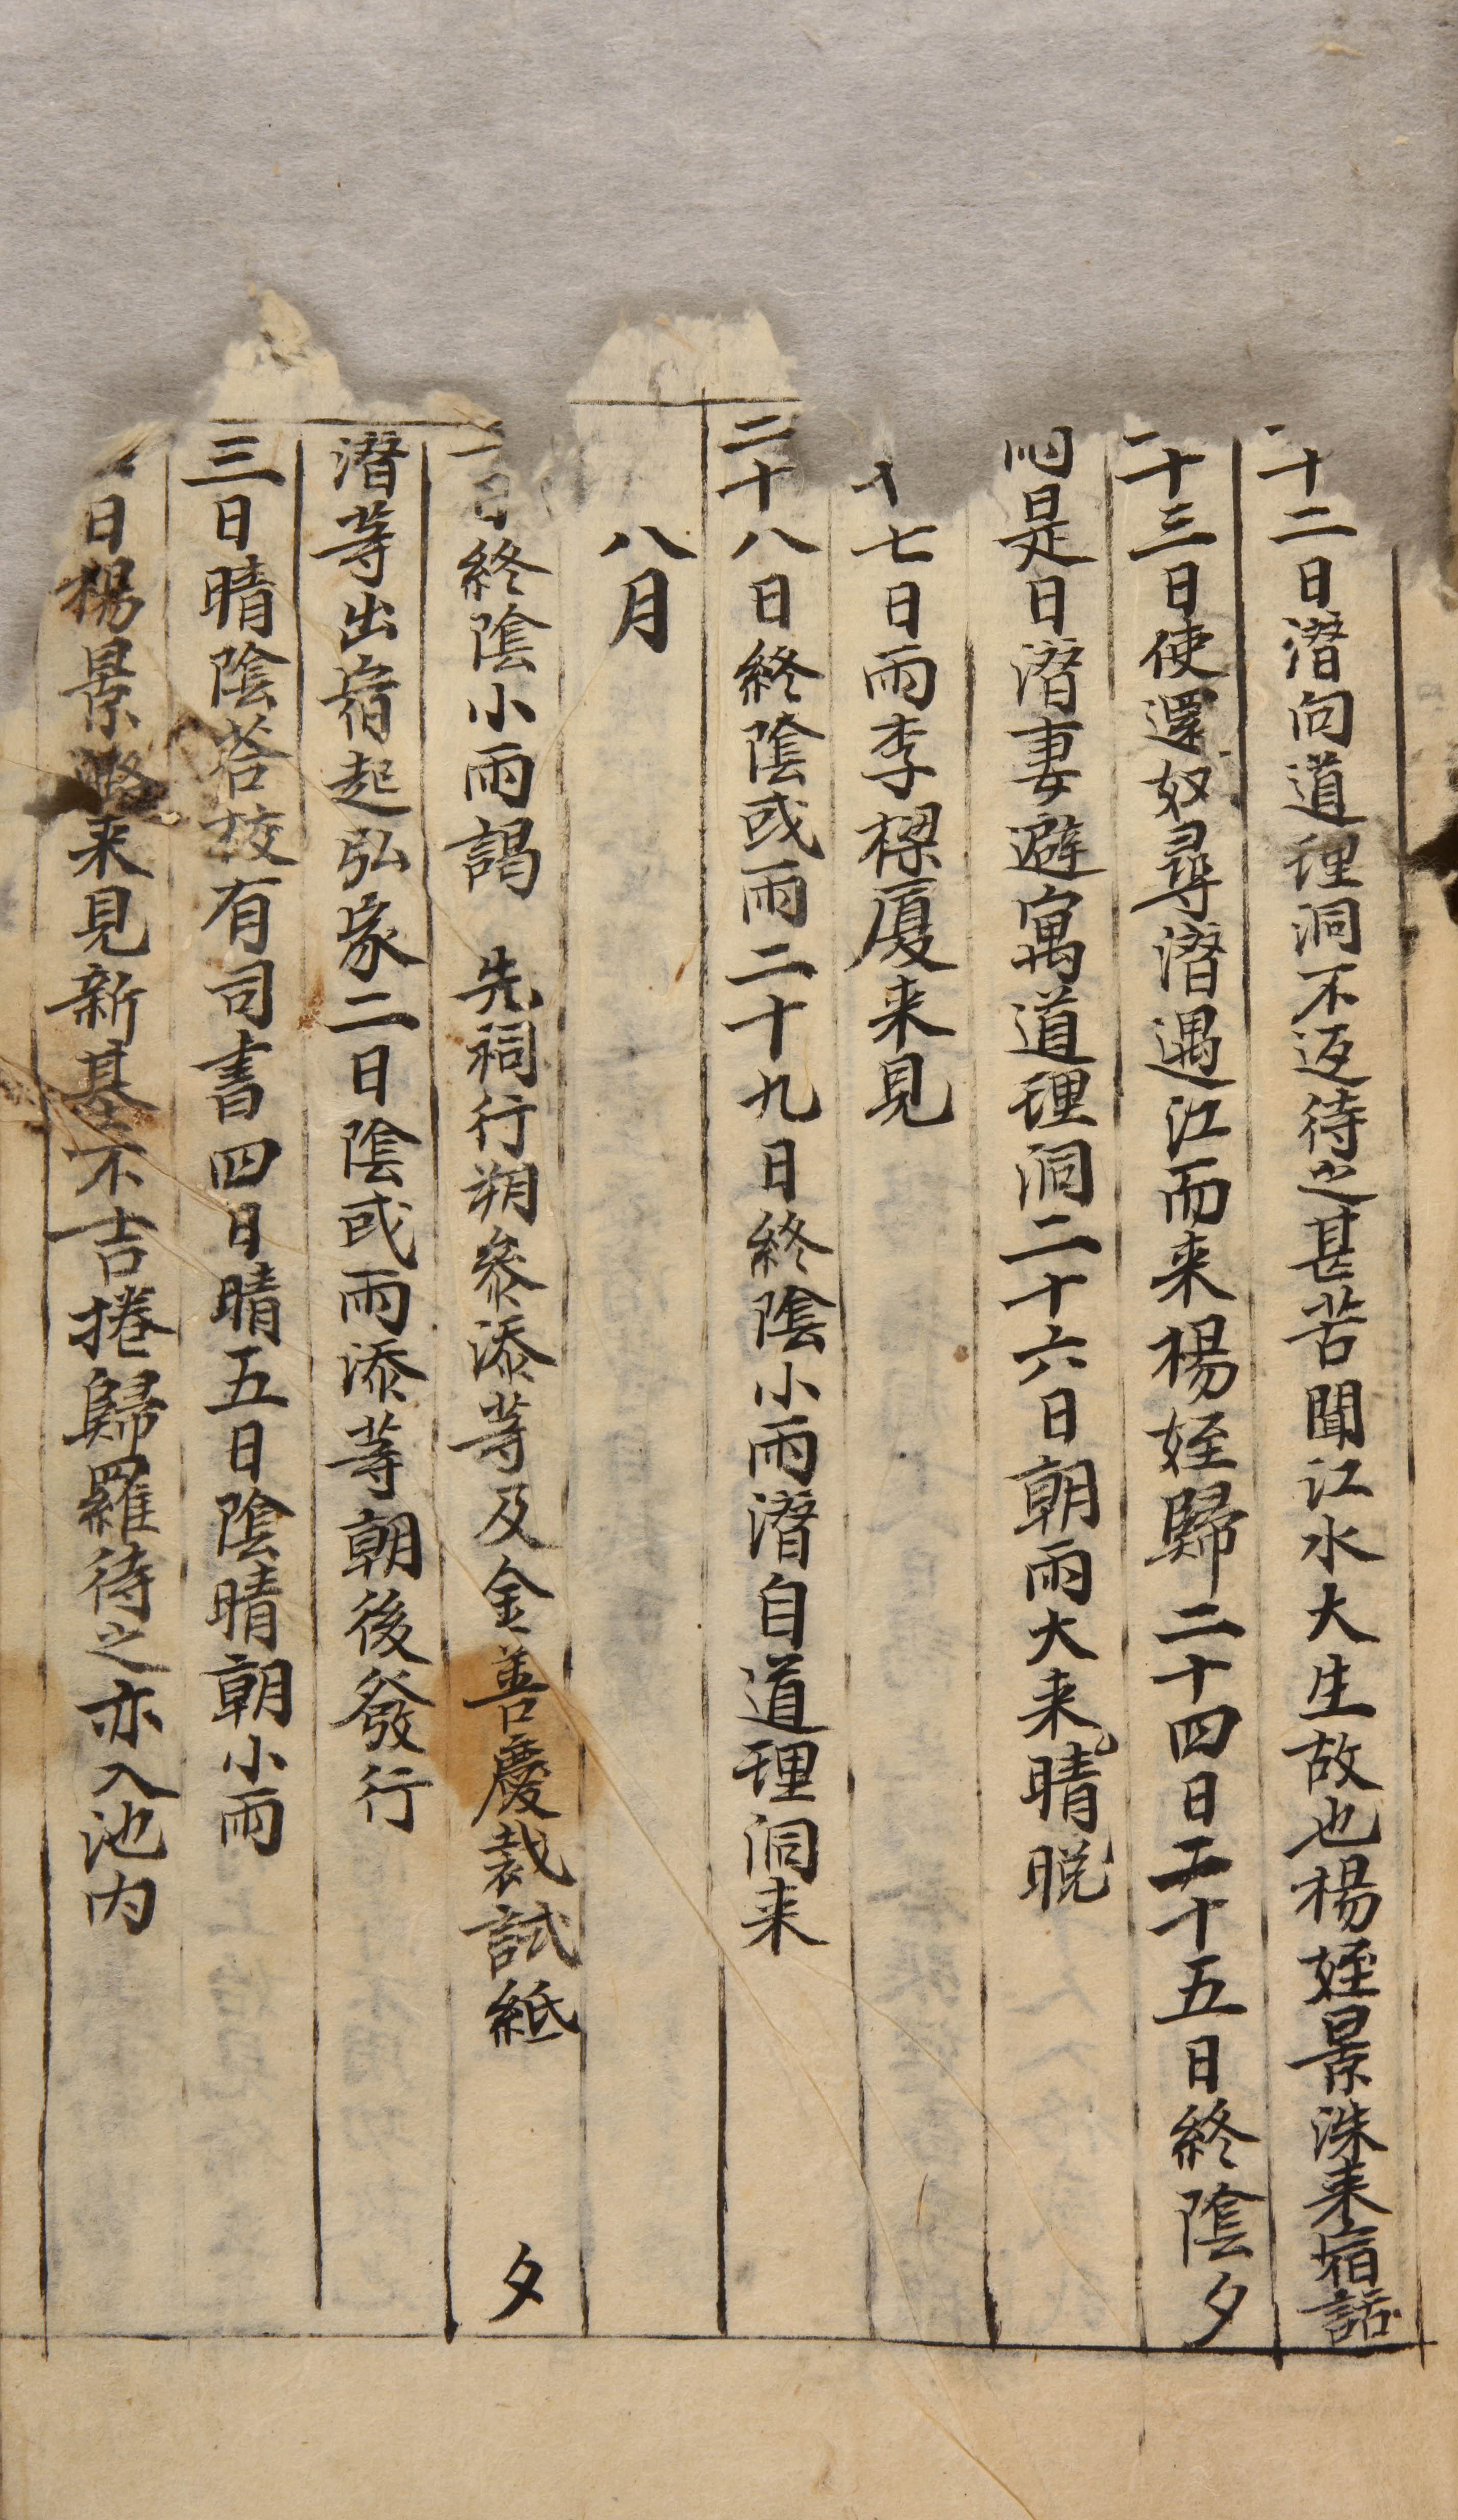 十二日濳向道理洞不返待之甚苦聞江水大生故也楊姪景洙来宿話
二十三日使還奴尋濳遇江而来楊姪歸二十四日二十五日終陰夕
是日濳妻避寓道理洞二十六日朝雨大来晴晩
七日雨李樑廈来見
二十八日終陰或雨二十九日終陰小雨濳自道理洞来
八月
一日終陰小雨謁 先祠行朔叅添等及金善慶裁試紙 夕
濳等出宿起弘家二日陰或雨添等朝後發行
三日晴陰荅校有司書四日晴五日陰晴朝小雨
日楊景来見新基不吉捲歸羅待之亦入池内